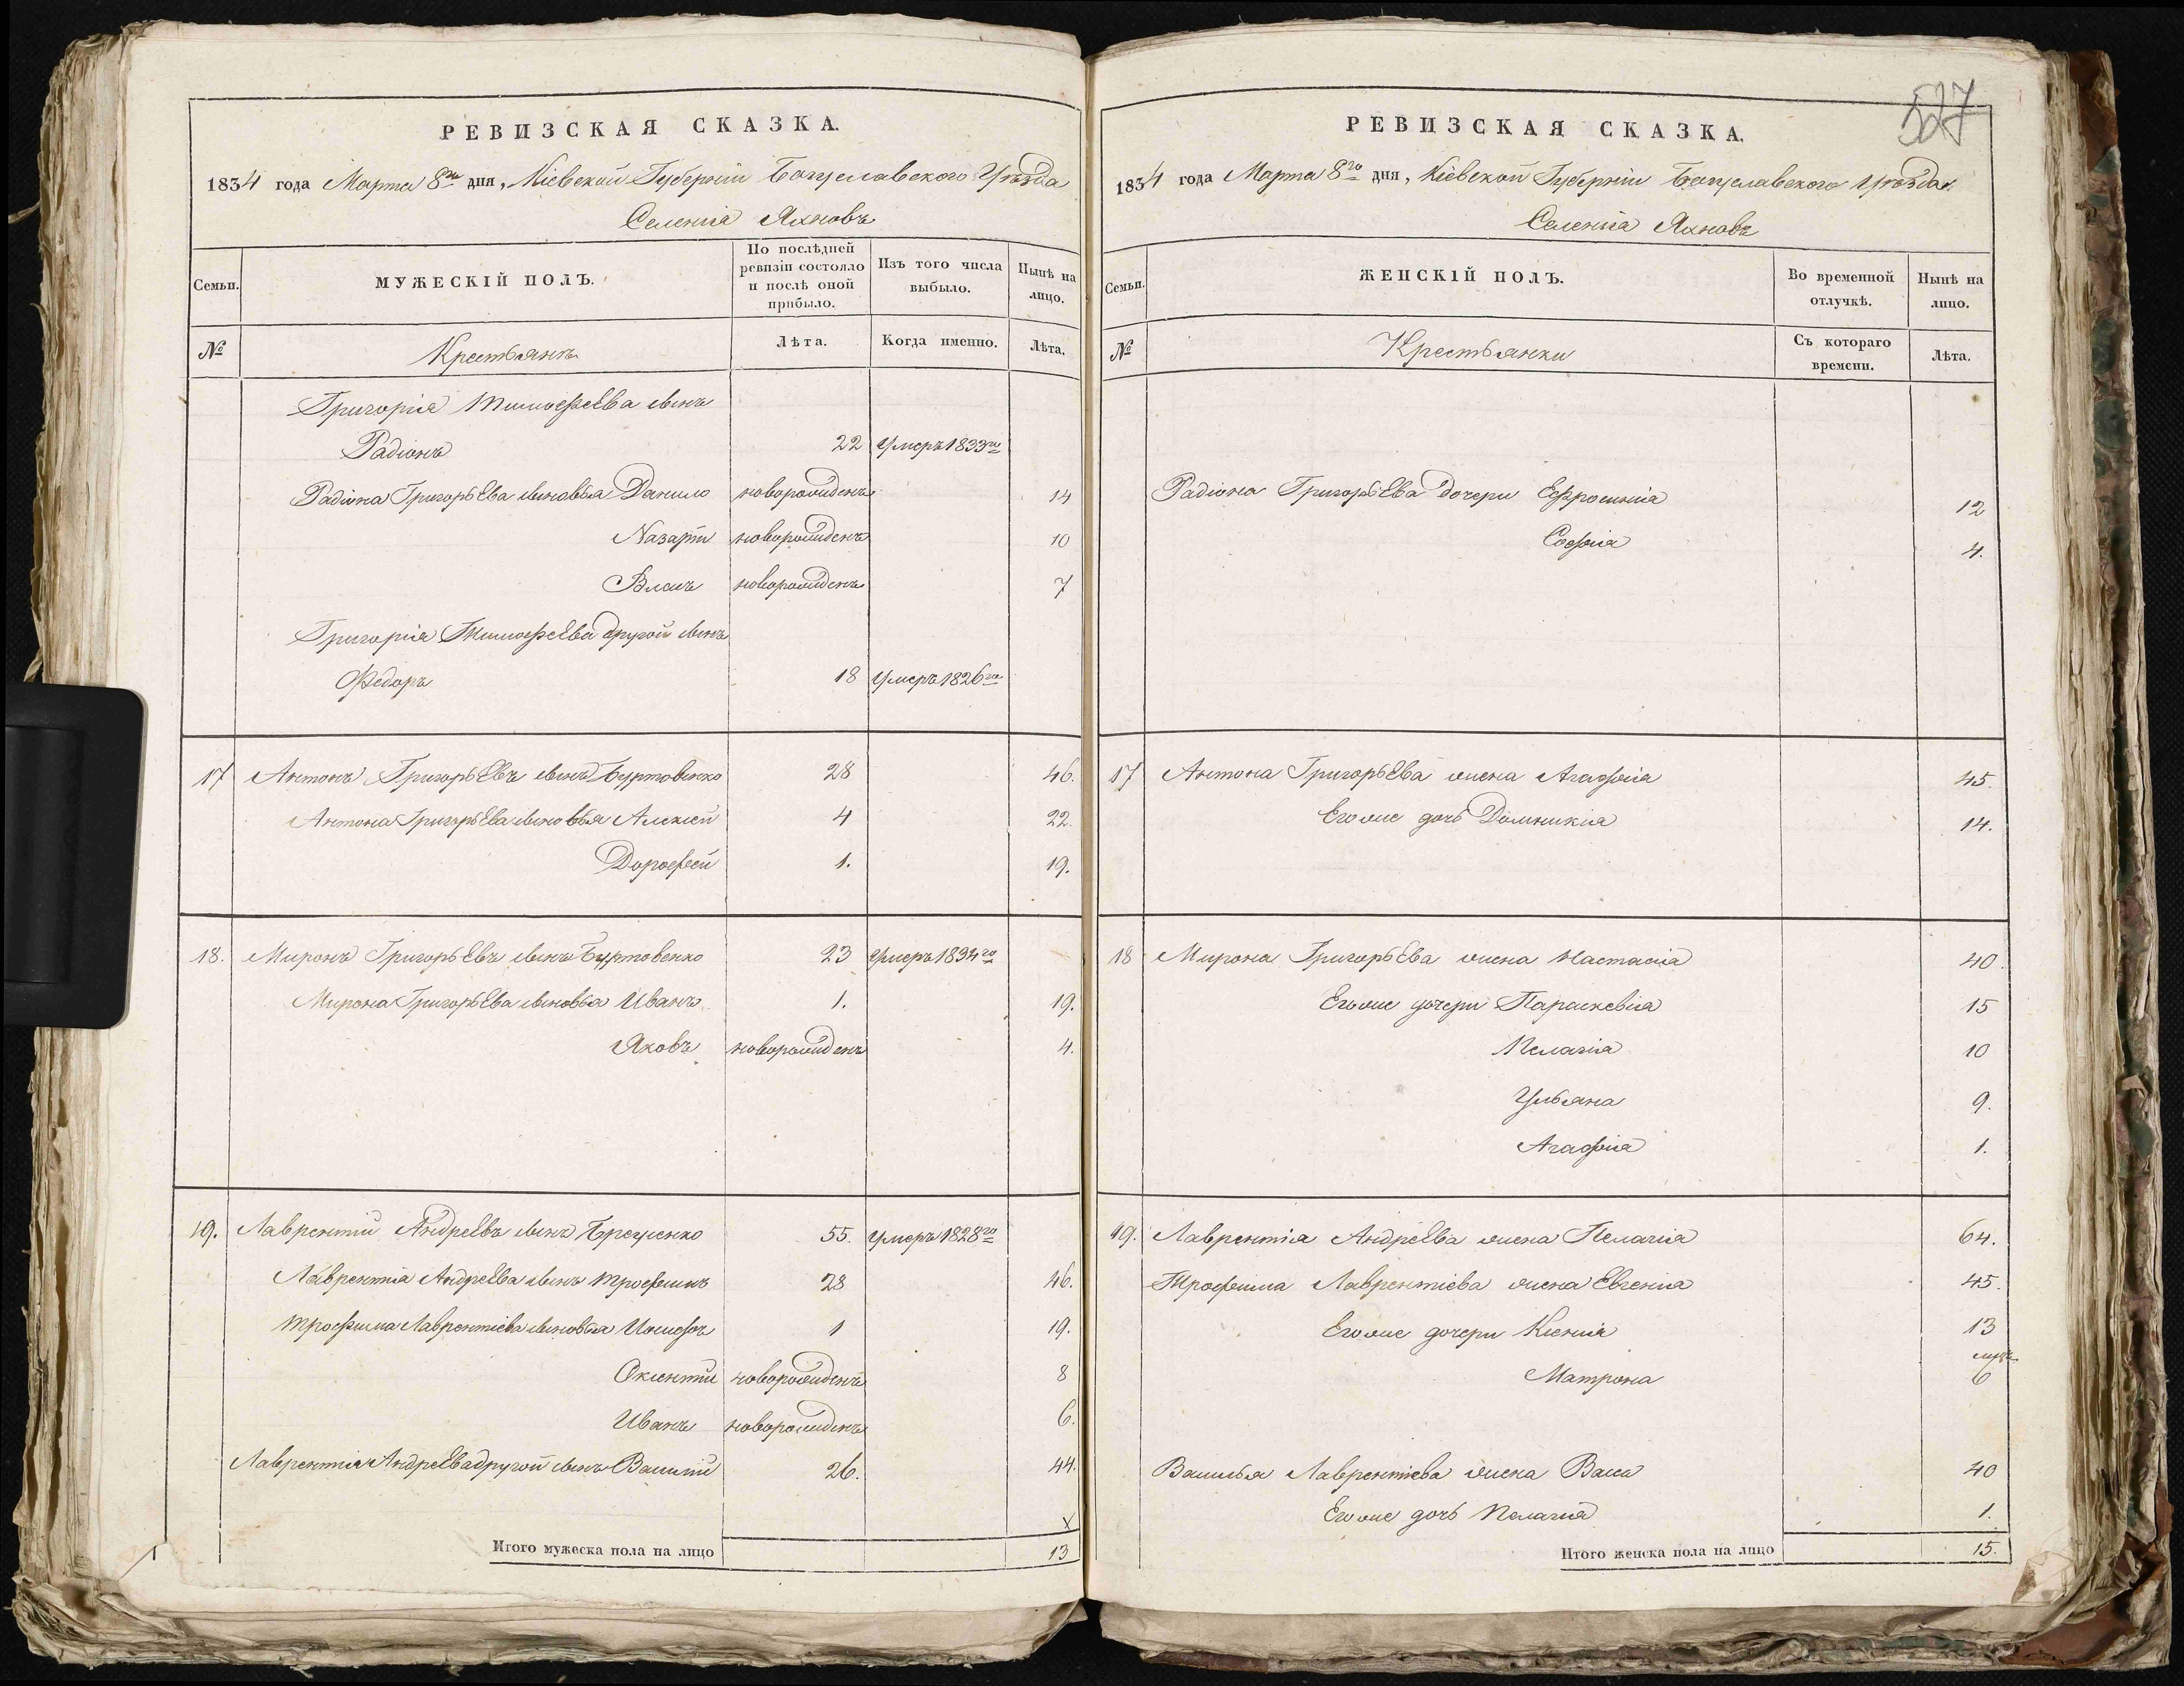 РЕВИЗСКАЯ СКАЗКА.
1834 года Марта 8го дня, Кіевской Губерніи Богуславского Уѣзда
Селенія Яхновъ
Семьи.
МУЖЕСКІЙ ПОЛЪ.
По послѣдней ревизіи состояло и послѣ оной прибыло.
Изъ того числа выбыло.
Нынѣ на лицо.
№
Крестьянъ
Лѣта.
Когда именно.
Лѣта.
Григорія Тимофеева сынъ
Радіонъ 22 Умеръ 1833го
Радіона Григорьева сыновья Данило новорожденъ 14
Назарти новорожденъ 10
Власъ новорожденъ 7
Григорія Тимофеева другой сынъ
Федоръ 18 Умеръ 1826го
17 Антонъ Григорьевъ сынъ Буртовенко 28 46.
Антона Григорьева сыновья Алексей 4 22.
Дорофей 1. 19.
18. Миронъ Григорьевъ сынъ Буртовенко 23 Умеръ 1834го
Мирона Григорьева сыновья Иванъ 1. 19.
Яковъ новорожденъ 4.
19. Лаврентій Андреевъ сынъ 55. Умеръ 1828го
Лаврентія Андреева сынъ Трофимъ 28 46.
Трофима Лаврентіева сыновья Иосифъ 1 19.
Оксентій новорожденъ 8
Иванъ новорожденъ 6.
Лаврентія Андреева другой сынъ Василій 26. 44.
Итого мужеска пола на лицо 13
527
РЕВИЗСКАЯ СКАЗКА.
1834 года Марта 8го дня, Кіевской Губерніи Богуславского Уѣзда
Селенія Яхновъ
Семьи.
ЖЕНСКІЙ ПОЛЪ.
Во временной отлучкѣ.
Нынѣ на лицо.
№
Крестьянки
Съ котораго времени.
Лѣта.
Радіона Григорьева дочери Ефросинія 12
Софія 4.
17 Антона Григорьева жена Агафія 45.
Егоже дочь Домникія 14.
18 Мирона Григорьева жена Настасія 40.
Егоже дочери Параскевія 15
Пелагія 10
Ульяна 9.
Агафія 1.
19. Лаврентія Андреева жена Пелагія 64.
Трофима Лаврентіева жена Евгенія 45.
Егоже дочери Ксенія 13
Матрона 6
Василья Лаврентіева жена Васса 40
Егоже дочь Пелагія 1.
Итого женска пола на лицо 15.